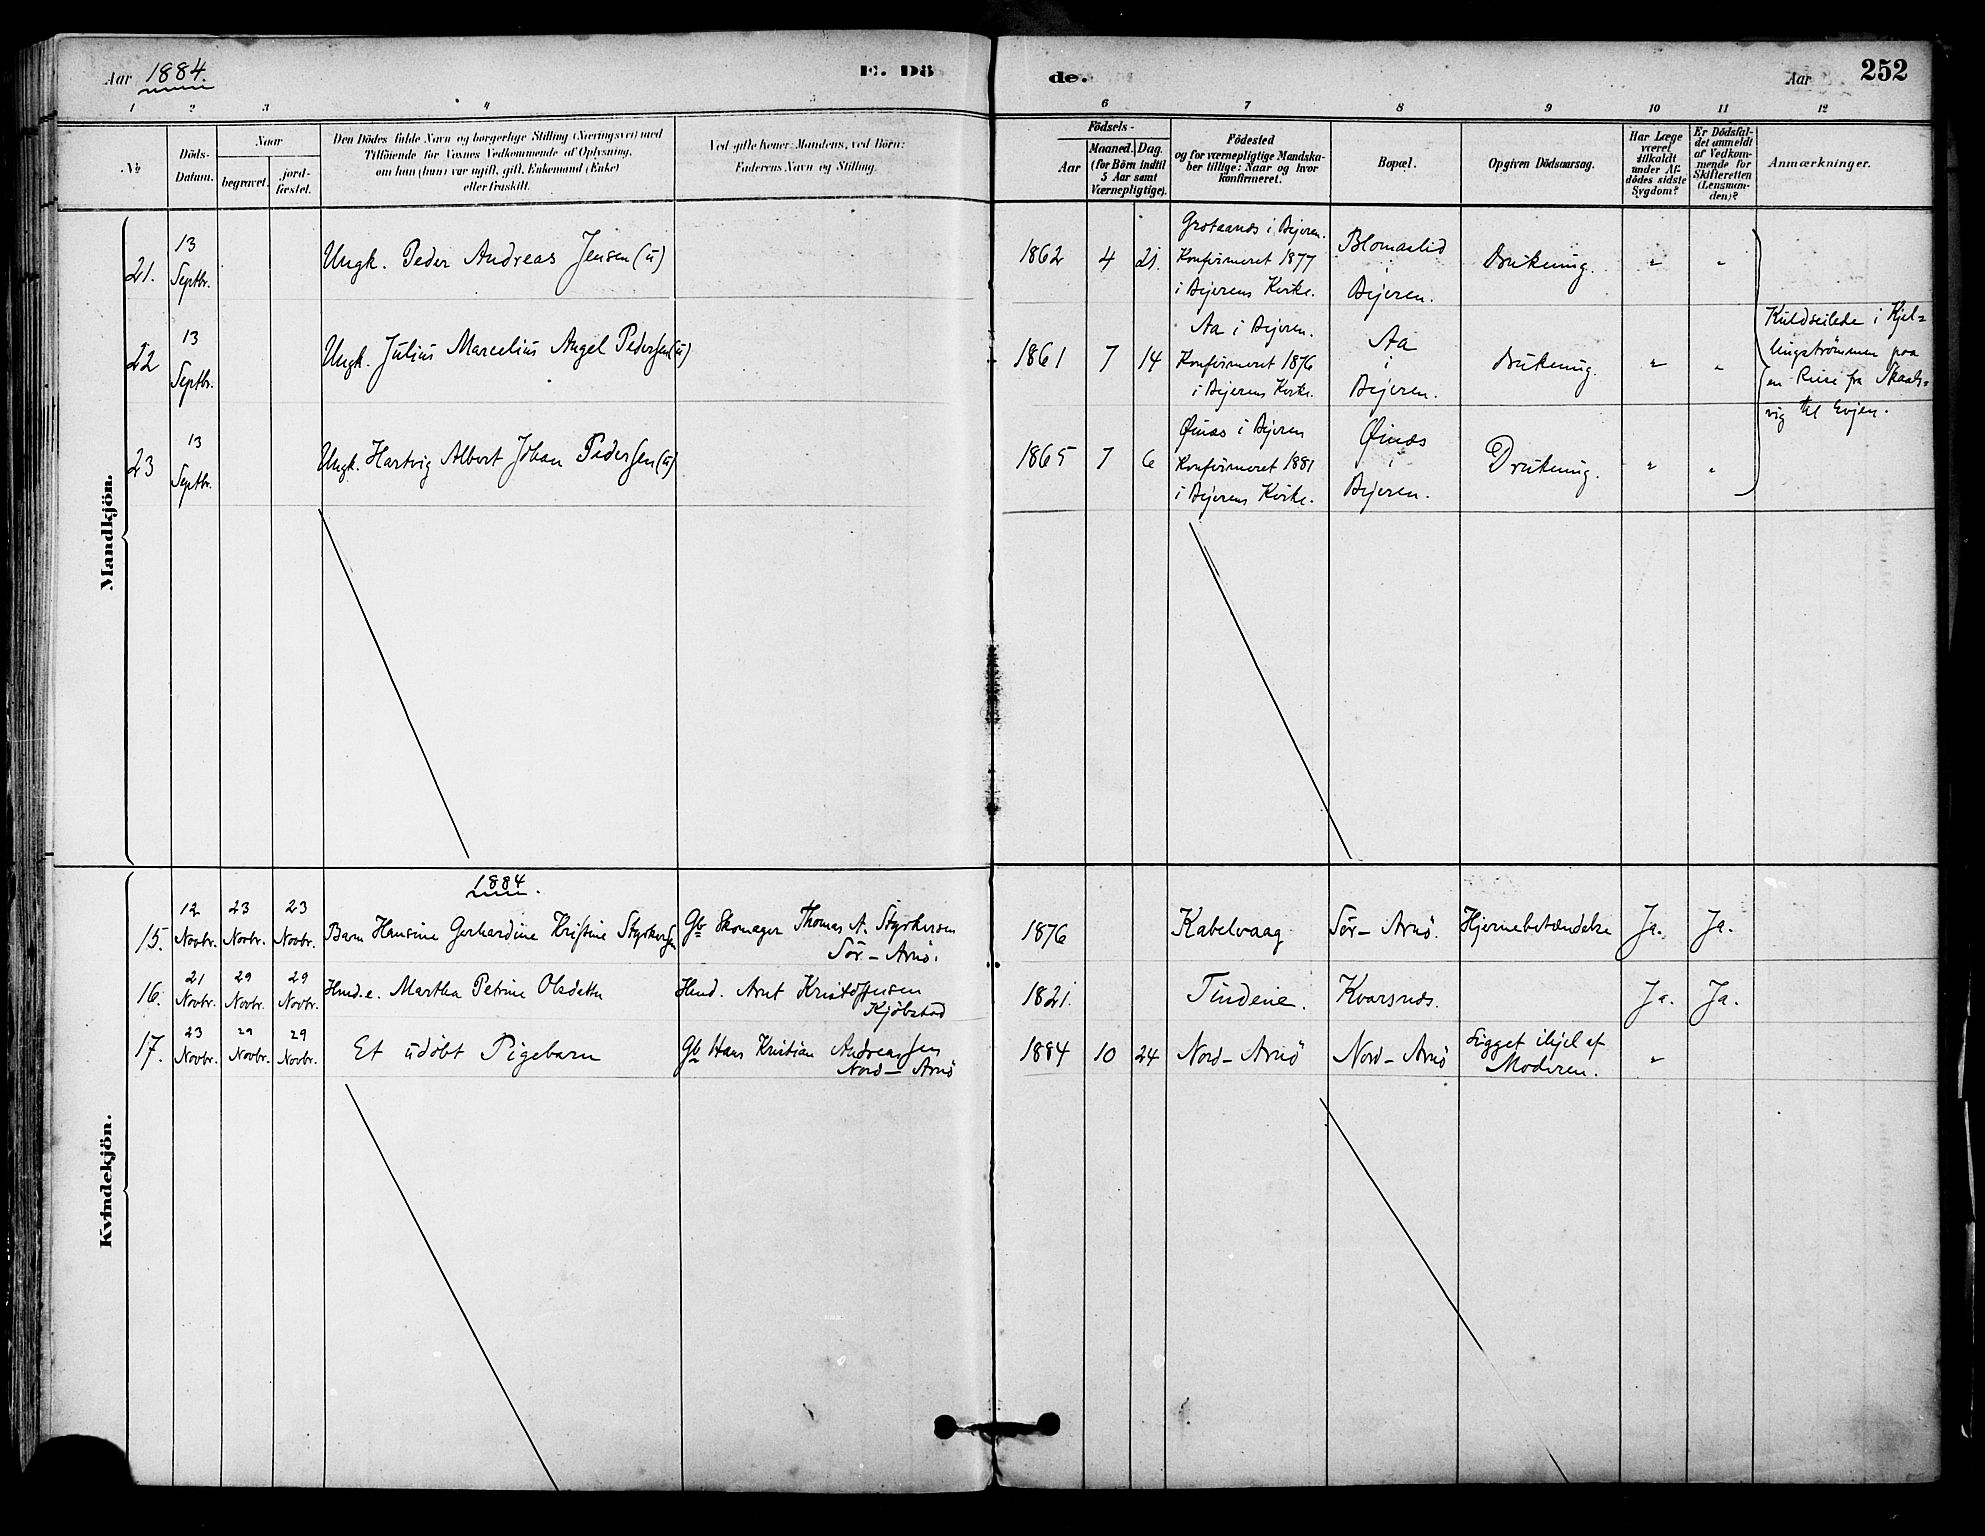 Aar 1884.
E. Dö
de.
Aar
252
1 2 3 4 5 6 7 8 9 10 11 12
No
Döds-
Datum.
Naar
begravet.
jord-
fæstet.
Den Dödes fulde Navn og borgerlige Stilling (Næringsvei) med
Tilföiende for Voxnes Vedkommende af Oplysning,
om han (hun) var ugift, gift, Enkemand (Enke)
eller fraskilt.
Ved gifte Koner: Mandens, ved Börn:
Faderens Navn og Stilling.
Födsels-
Aar
Maaned. Dag.
(for Börn indtil
5 Aar samt
Værnepligtige).
Födested
og for værnepligtige Mandska-
ber tillige: Naar og hvor
konfirmeret.
Bopæl.
Opgiven Dödsaarsag.
Har Læge
været
tilkaldt
under Af-
dödes sidste
Sygdom?
Er Dödsfal-
det anmeldt
af Vedkom-
mende for
Skifteretten
(Lensman-
den)?
Anmærkninger.
Mandkjön.
21. 13 Septbr. Ungk. Peder Andreas Jensen (u)
1862 4 21. Grotaanes i Bejeren.
Konfirmeret 1877
i Bejerens Kirke.
Blomarlid
i
Bejeren.
Drukning. " "
22 13 Septbr. Ungk. Julius Marcelius Angel Pedersen (u)
1861 7 14 Aa i Bejeren.
Konfirmeret 1876
i Bejerens Kirke.
Aa
i
Bejeren.
Drukning. " "
Kuldseilede i Kjel-
lingstrømmen paa
en Reise fra Skaals-
vig til Evjen.
23 13 Septbr. Ungk. Hartvig Albert Johan Pedersen (u)
1865 7 6 Øinæs i Bejeren
Konfirmeret 1881
i Bejerens Kirke.
Øinæs
i
Bejeren.
Drukning. " "
Kvindekjön.
1884.
15. 12 Novbr. 23 Novbr. 23 Novbr. Barn Hansine Gerhardine Kristine Styrkersen
Gb Skomager Thomas A. Styrkersen
Sör-Arnö.
1876 Kabelvaag Sör-Arnö. Hjernebetændelse Ja. Ja.
16. 21 Novbr. 29 Novbr. 29 Novbr. Hmd.e. Martha Petrine Olsdatter
Hmd. Arnt Kristoffersen
Kjöbstad
1821. Tindene. Kvarsnes. Ja. Ja.
17. 23 Novbr. 29 Novbr. 29 Novbr. Et udöbt Pigebarn
Gb Hans Kristian Andreassen
Nord-Arnö
1884 10 24 Nord-Arnö Nord-Arnö Ligget ihjel af
Moderen. "